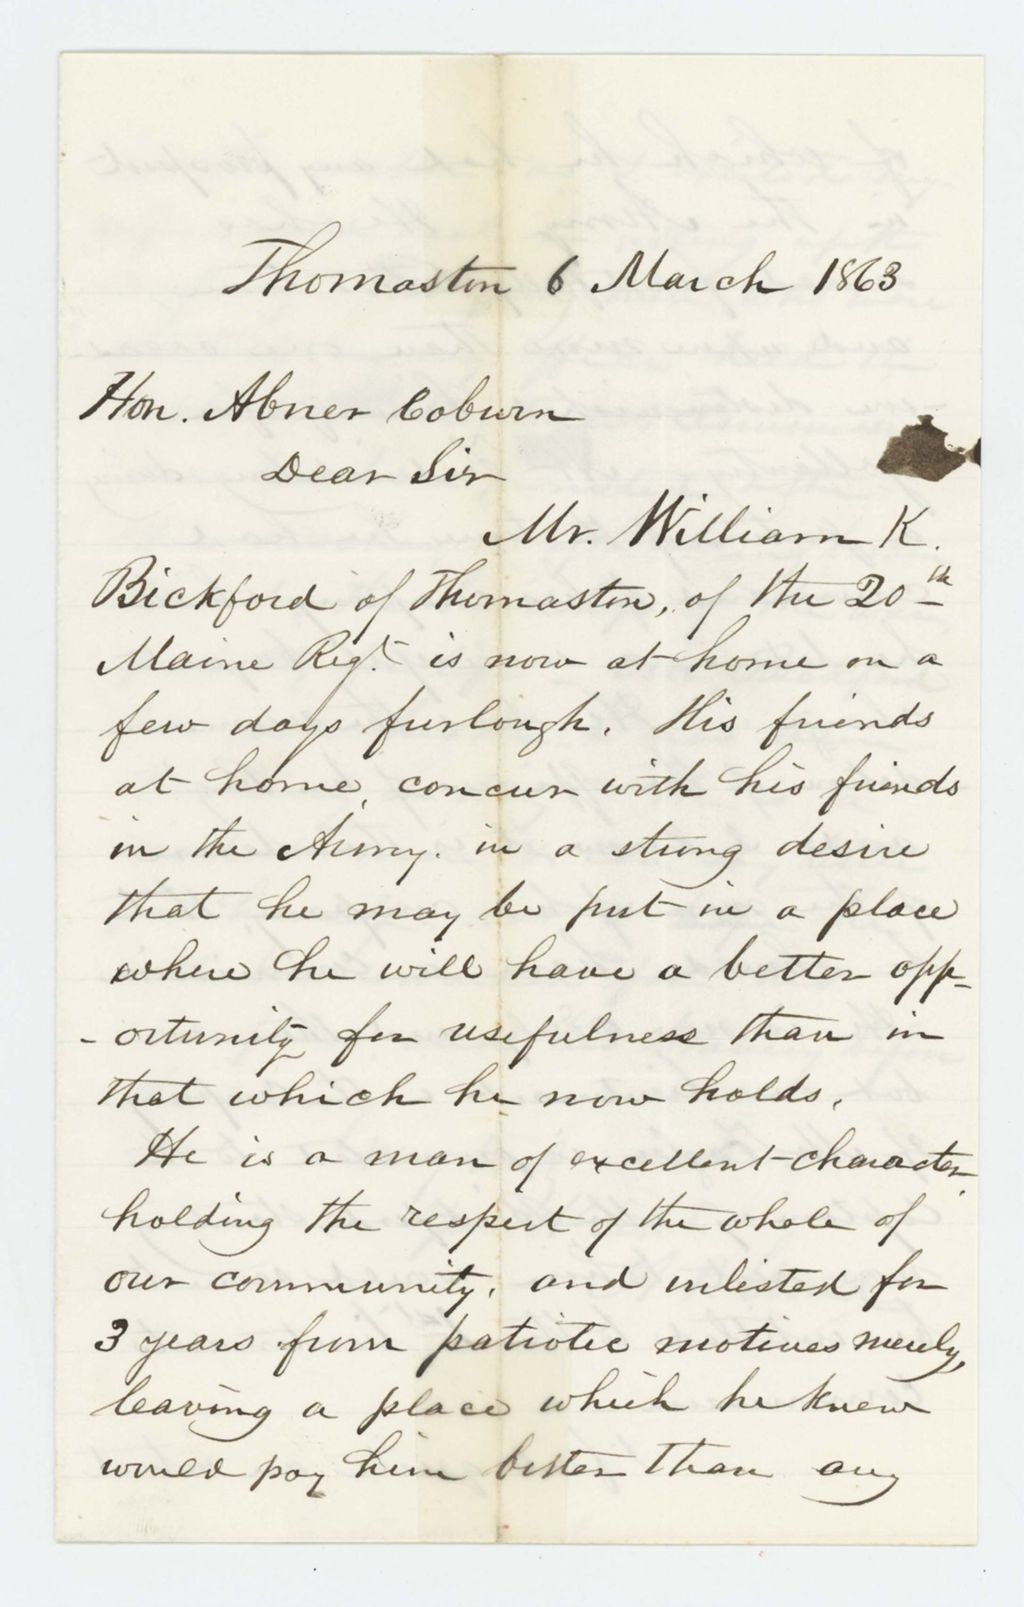 Thomaston 6 March 1863
Hon. Abner Coburn
Dear Sir
Mr. William K.
Bickford of Thomaston, of the 20th
Maine Regt. is now at home on a
few days furlough. His friends
at home, concur with his friends
in the Army. in a strong desire
that he may be put in a place
where he will have a better opp-
-ortunity for usefulness than in
that which he now holds.
He is a man of excellent character,
holding the respect of the whole of
our community, and inlisted for
3 years from patriotic motives merely,
leaving a place which he knew
would pay him better than any